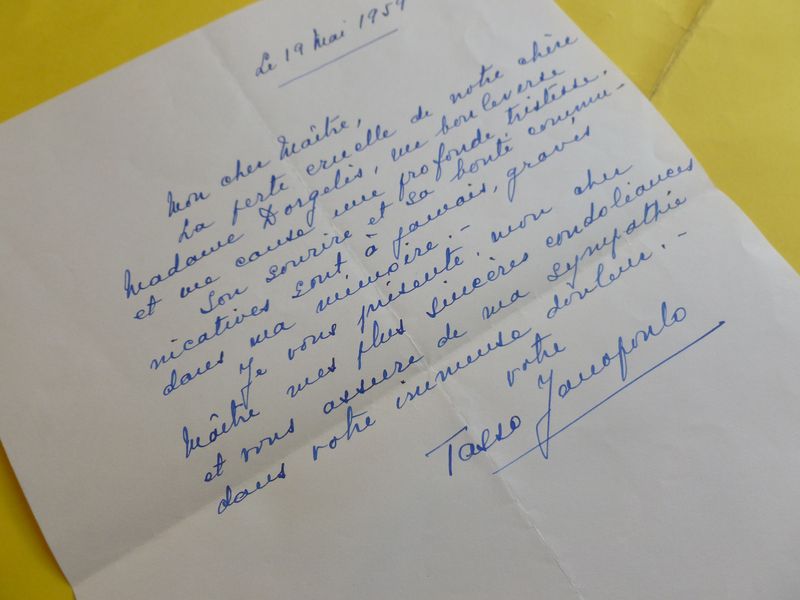 Le 19 Mai 1959
Mon cher Maître,
La perte cruelle de notre chère
Madame Dorgelès, me bouleverse
et me cause une profonde tristesse.
Son sourire et sa bonté commu-
nicatives sont à jamais, gravés
dans ma mémoire.-
Je vous présente, mon cher
Maître mes plus sincères condoléances
et vous assure de ma sympathie
dans votre immense douleur.-
votre
Tasso Janopoulo